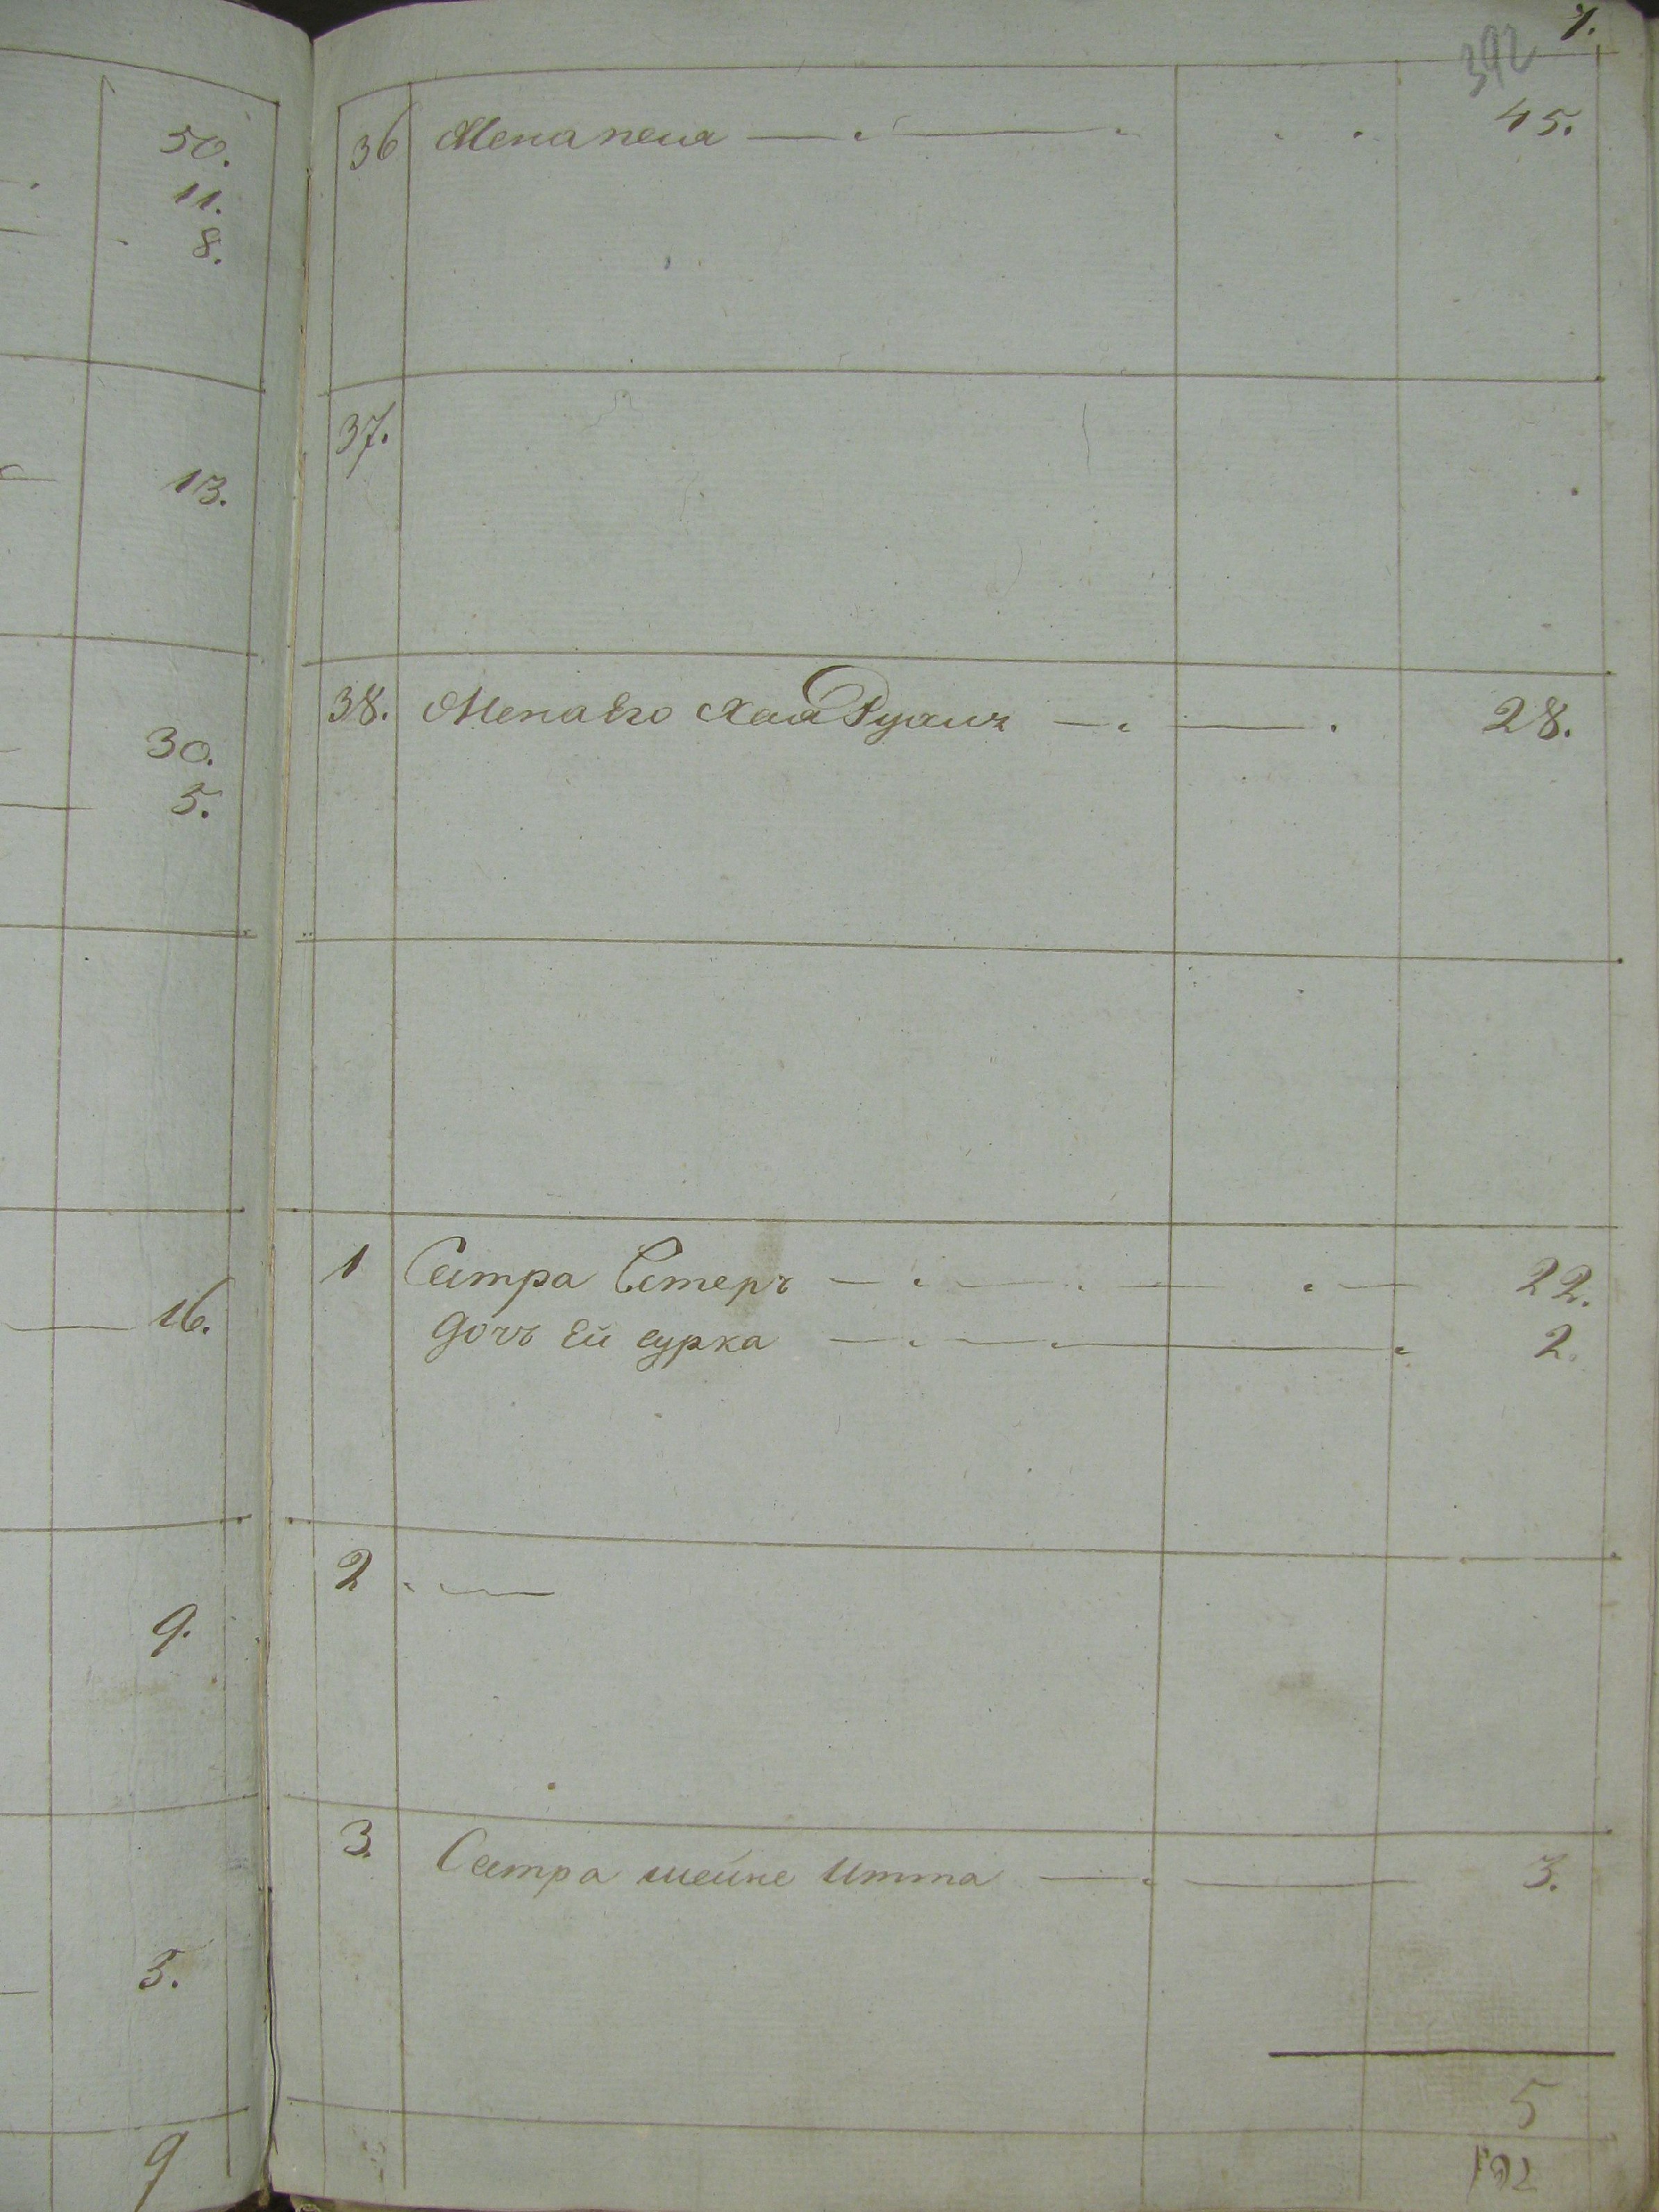 50.
11.
8.
13.
30.
5.
16.
9.
5.
9
7.
392
36 Жена песа 45.
37.
38. Жена Его Хая 28.
1 Сестра Естеръ 22.
Дочь Ей сурка 2.
2
3. Сестра шейне итта 3.
5